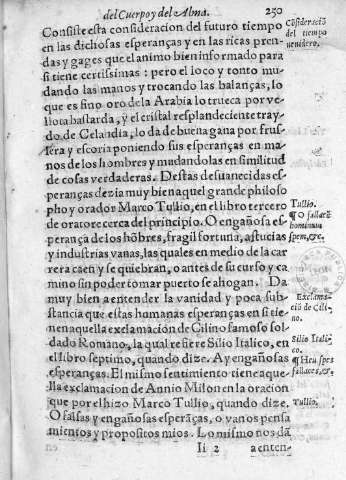 del Cuerpo y del Alma. 250
Consiste esta consideracion del futuro tiempo
en las dichosas esperanças y en las ricas pren-
das y gages que el animo bien informado para
si tiene certissimas : pero el loco y tonto mu-
dando las manos y trocando las balanças, lo
que es fino oro de la Arabia lo trueca por ve-
llota bastarda, y el cristal resplandeciente tray-
do de Celandia, lo da de buena gana por frus-
lera y escoria poniendo sus esperanças en ma-
nos de los hombres y mudandolas en similitud
de cosas verdaderas. Destas desuanecidas es-
peranças dezia muy bien aquel grande philoso
pho y orador Marco Tullio, en el libro tercero
de oratore cerca del principio. O engañosa es-
perança de los hõbres, fragil fortuna, astucias
y industrias vanas, las quales en medio de la car
rera caen y se quiebran, o antes de su curso y ca
mino sin poder tomar puerto se ahogan. Da
muy bien a entender la vanidad y poca sub-
stancia que estas humanas esperanças en si tie-
nen aquella exclamacion de Cilino famoso sol-
dado Romano, la qual refiere Silio Italico, en
el libro septimo, quando dize. Ay engañosas
esperanças. El mismo sentimiento tiene aque-
lla exclamacion de Annio Milon en la oracion
que por el hizo Marco Tullio, quando dize.
O falsas y engañosas esperãças, o vanos pensa
mientos y propositos mios. Lo mismo nos dã
Ii 2 a enten-
Cõsideraciõ
del tiempo
venidero.
Tullio.
¶ O fallacẽ
hominum
spem, &c.
Exclama-
ciõ de Cili-
no.
Silio Itali-
co.
¶ Heu spes
fallaces, &c.
Tullio.